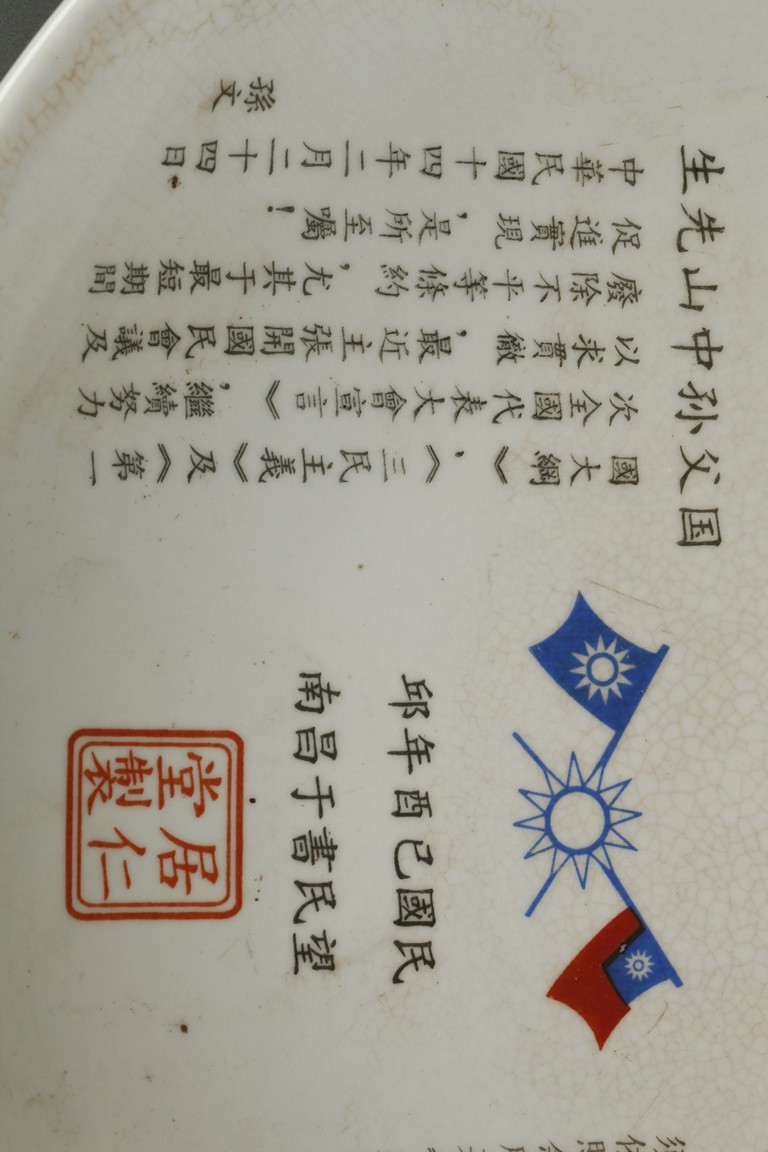 国父孙中山先生
國大綱》,《三民主義》及《第一
次全國代表大會宣言》,繼續努力
以求貫徹,最近主張開國民會議及
廢除不平等條約,尤其于最短期間
促進實現,是所至囑!
中華民國十四年二月二十四日
孫文
民國己酉年邱
望民書于昌南
居仁
堂製